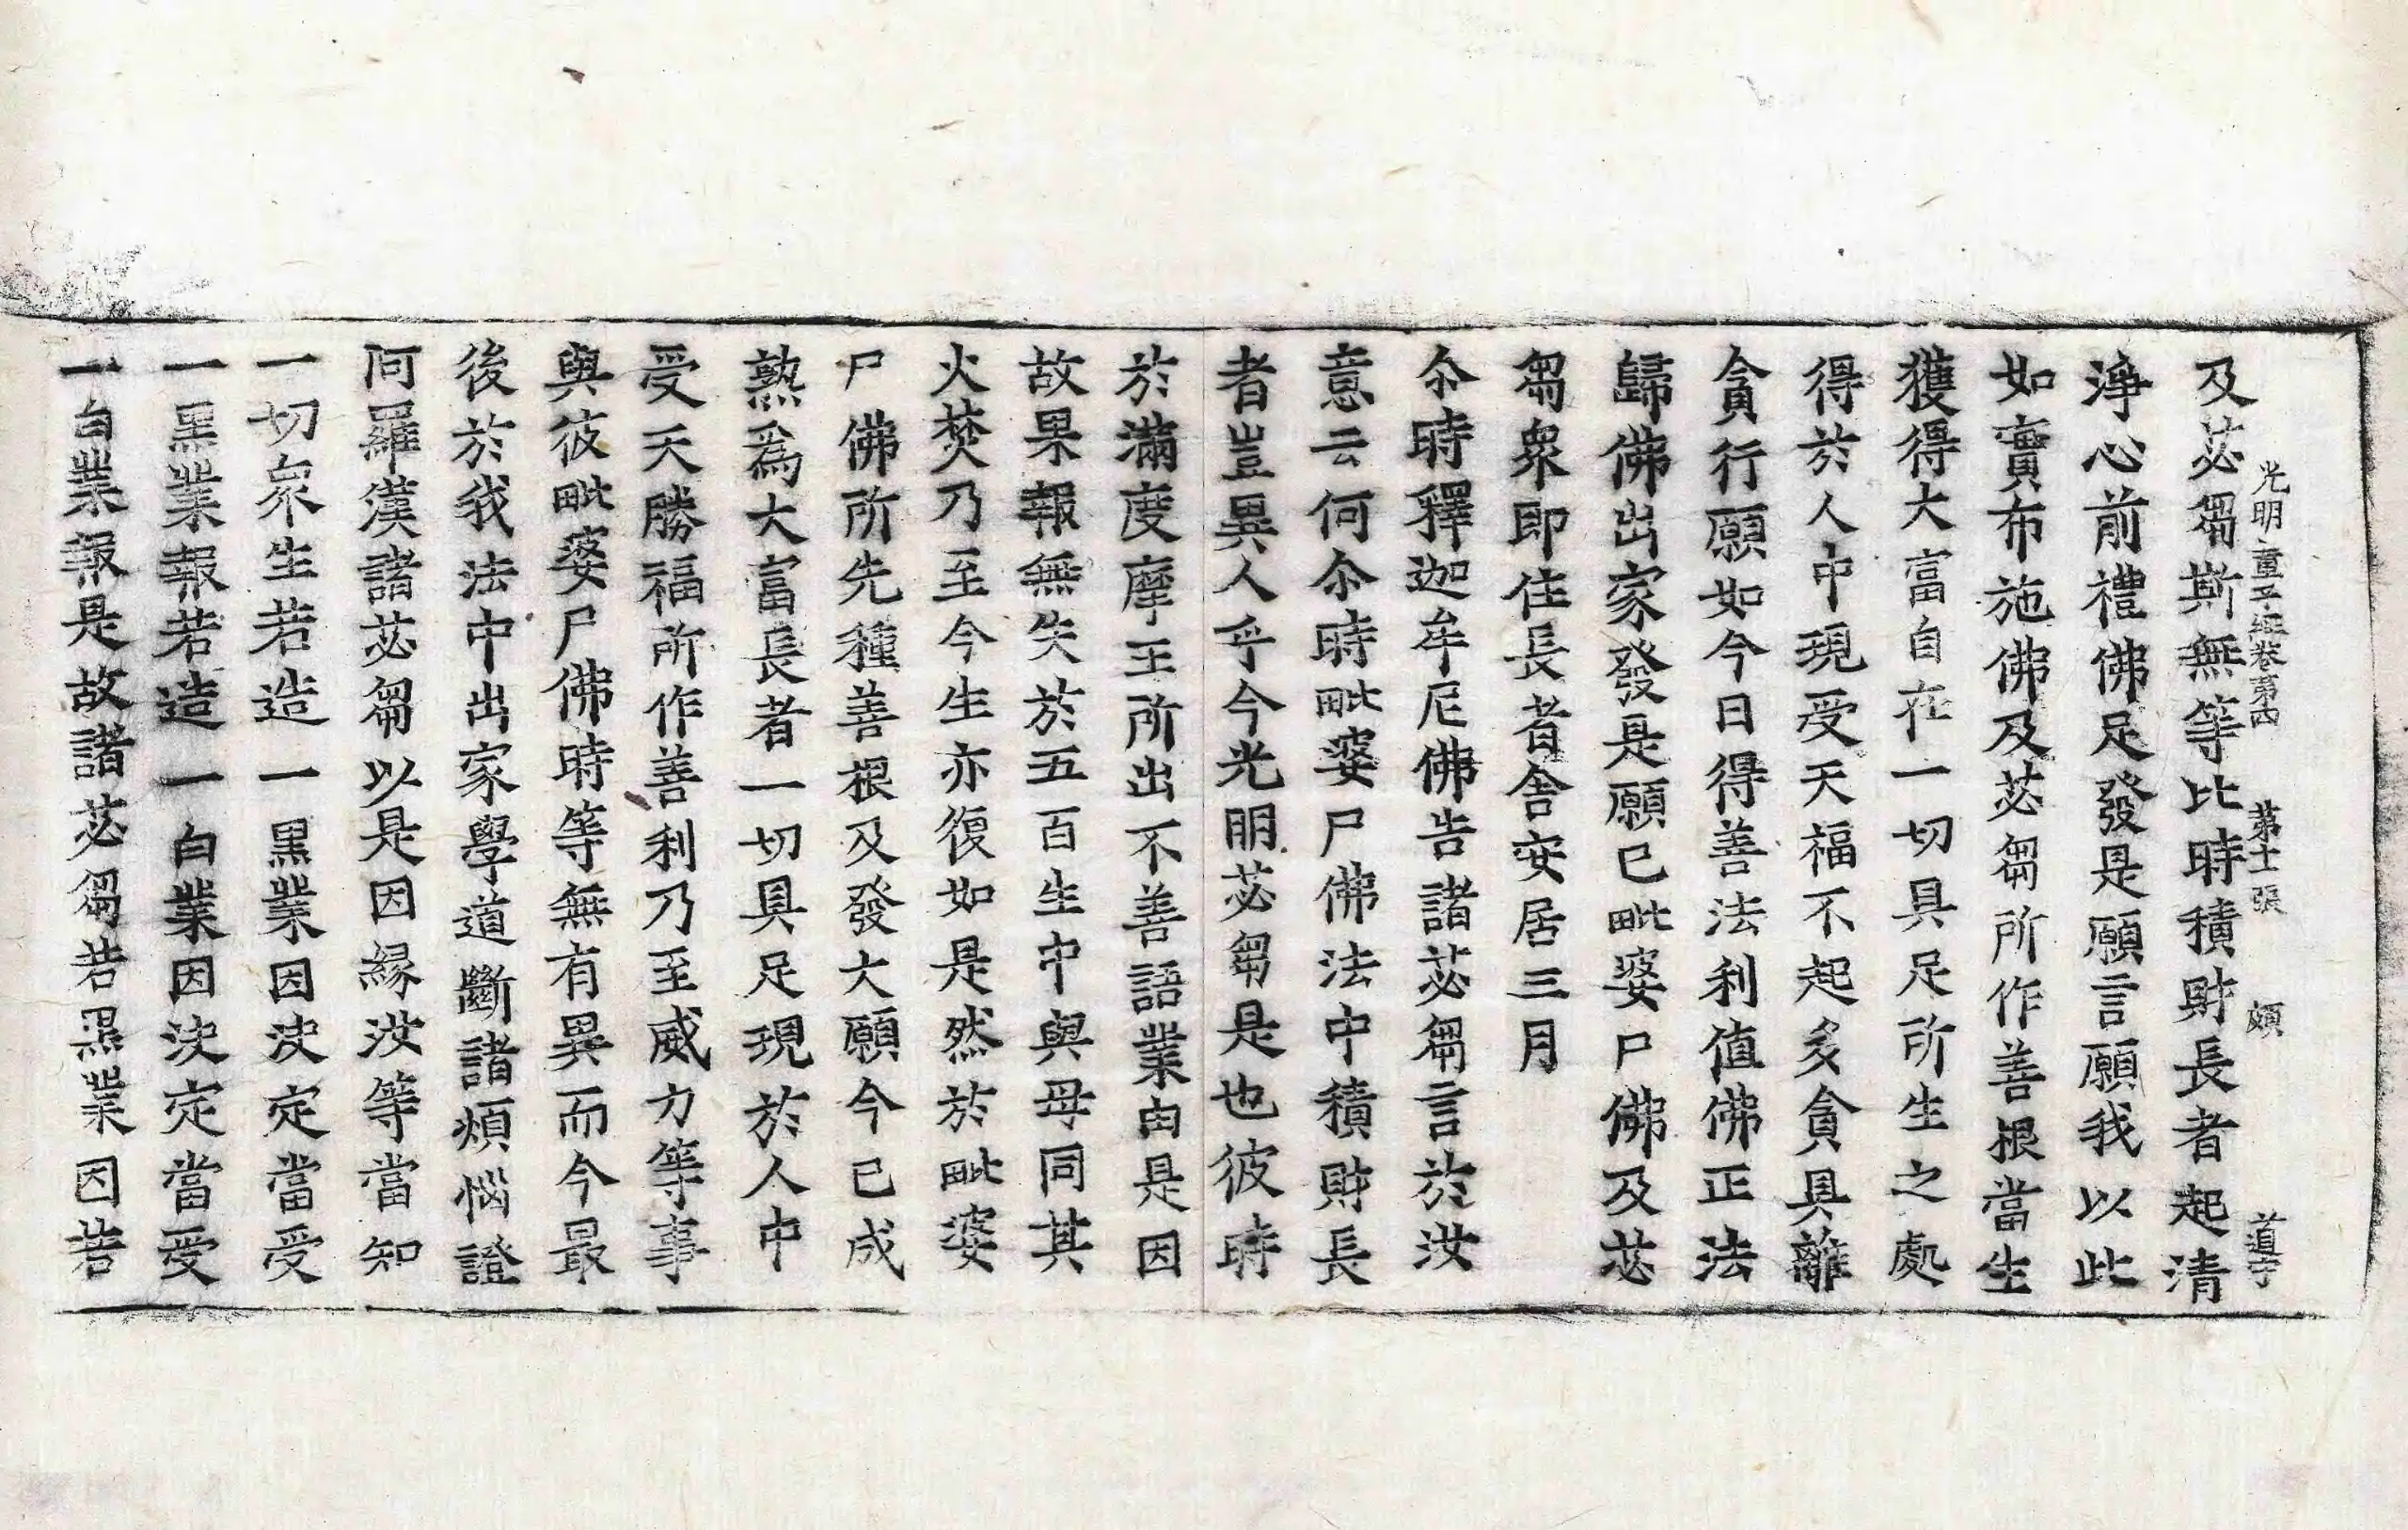 光明童子經卷第四 第十二張 頗 道字
及苾芻斯無等比時積財長者起清
淨心前禮佛足發是願言願我以此
如實布施佛及苾芻所作善根當生
獲得大富自在一切具足所生之處
得於人中現受天福不起多貪具離
貪行願如今日得善法利值佛正法
歸佛出家發是願已毗婆尸佛及苾
芻衆即住長者舍安居三月
尒時釋迦牟尼佛告諸苾芻言於汝
意云何尒時毗婆尸佛法中積財長
者豈異人乎今光明苾芻是也彼時
於滿度摩王所出不善語業由是因
故果報無失於五百生中與母同其
火焚乃至今生亦復如是然於毗婆
尸佛所先種善根及發大願今已成
熟爲大富長者一切具足現於人中
受天勝福所作善利乃至威力等事
與彼毗婆尸佛時等無有異而今最
後於我法中出家學道斷諸煩惱證
阿羅漢諸苾芻以是因緣汝等當知
一切衆生若造一黑業因決定當受
一黑業報若造一白業因決定當受
一白業報是故諸苾芻若黑業因若